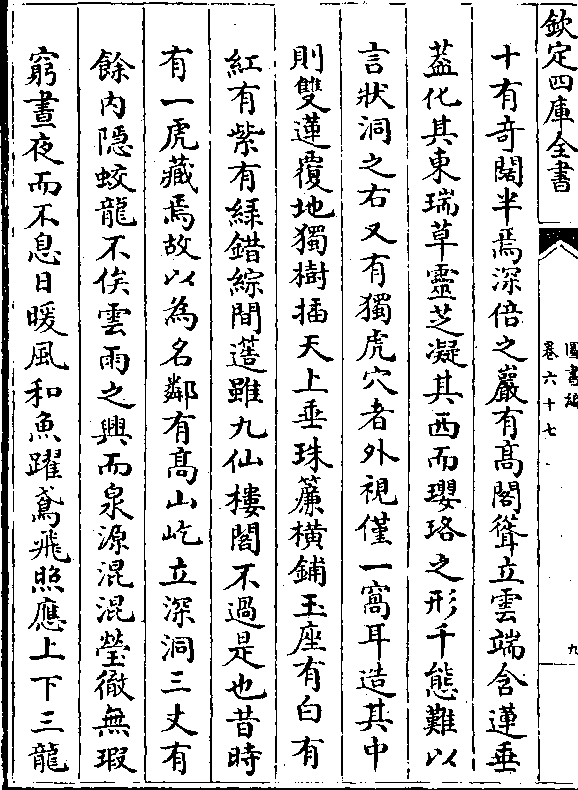 欽定四庫全書
圖書編
卷六十七
九
十有奇闊半焉深倍之巖有髙閣聳立雲端含蓮垂
葢化其東瑞草靈芝凝其西而瓔珞之形千態難以
言狀洞之右又有獨虎穴者外視僅一窩耳造其中
則雙蓮覆地獨樹插天上垂珠簾横鋪玉座有白有
紅有紫有緑錯綜間蓫雖九仙樓閣不過是也昔時
有一虎藏焉故以為名鄰有髙山屹立深洞三丈有
餘内隠蛟龍不俟雲雨之興而泉源混混瑩徹無瑕
窮晝夜而不息日暖風和魚躍鳶飛照應上下三龍